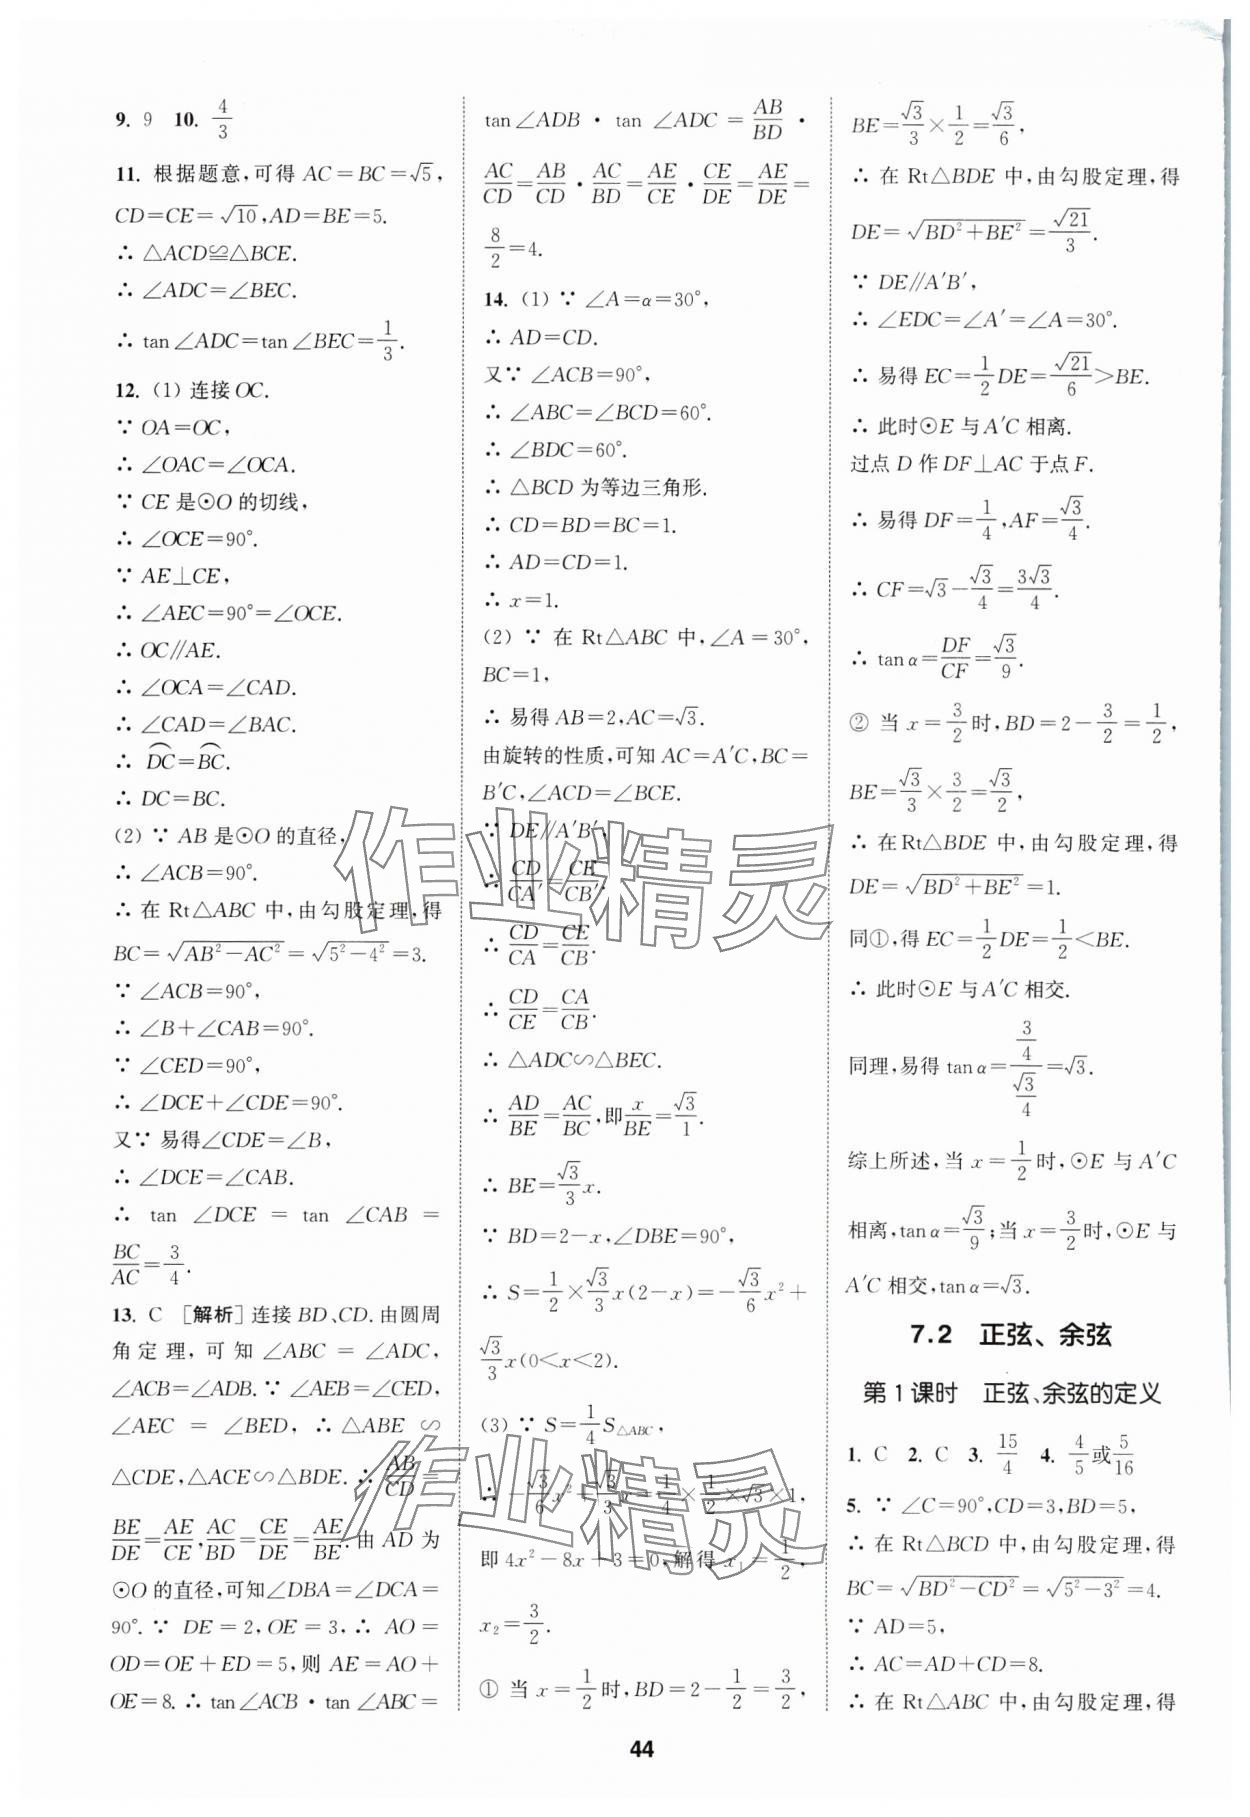 9. 9　10. 4/3
11. 根据题意,可得 AC=BC=√5,
CD=CE=√10,AD=BE=5.
∴ △ACD≌△BCE.
∴ ∠ADC=∠BEC.
∴ tan∠ADC=tan∠BEC=1/3.
12. (1) 连接 OC.
∵ OA=OC,
∴ ∠OAC=∠OCA.
∵ CE 是⊙O 的切线,
∴ ∠OCE=90°.
∵ AE⊥CE,
∴ ∠AEC=90°=∠OCE.
∴ OC∥AE.
∴ ∠OCA=∠CAD.
∴ ∠CAD=∠BAC.
∴ ⌒DC=⌒BC.
∴ DC=BC.
(2) ∵ AB 是⊙O 的直径,
∴ ∠ACB=90°.
∴ 在 Rt△ABC 中,由勾股定理,得
BC=√(AB²-AC²)=√(5²-4²)=3.
∵ ∠ACB=90°,
∴ ∠B+∠CAB=90°.
∵ ∠CED=90°,
∴ ∠DCE+∠CDE=90°.
又∵ 易得∠CDE=∠B,
∴ ∠DCE=∠CAB.
∴ tan ∠DCE = tan ∠CAB =
BC/AC=3/4.
13. C [解析]连接 BD、CD. 由圆周
角定理,可知∠ABC=∠ADC,
∠ACB=∠ADB. ∵ ∠AEB=∠CED,
∠AEC=∠BED, ∴ △ABE∽
△CDE,△ACE∽△BDE. ∴ AB/CD=
BE/DE=AE/CE,AC/BD=CE/DE=AE/BE. 由 AD 为
⊙O 的直径,可知∠DBA=∠DCA=
90°. ∵ DE=2,OE=3, ∴ AO=
OD=OE+ED=5,则 AE=AO+
OE=8. ∴ tan∠ACB·tan∠ABC=
tan∠ADB·tan ∠ADC=AB/BD·
AC/CD=AB/CD·AC/BD=AE/CE·CE/DE=AE/DE=
8/2=4.
14. (1) ∵ ∠A=α=30°,
∴ AD=CD.
又∵ ∠ACB=90°,
∴ ∠ABC=∠BCD=60°.
∴ ∠BDC=60°.
∴ △BCD 为等边三角形.
∴ CD=BD=BC=1.
∴ AD=CD=1.
∴ x=1.
(2) ∵ 在 Rt△ABC 中,∠A=30°,
BC=1,
∴ 易得 AB=2,AC=√3.
由旋转的性质,可知 AC=A′C,BC=
B′C,∠ACD=∠BCE.
∵ DE∥A′B′,
∴ CD/CA′=CE/CB′.
∴ CD/CA=CE/CB.
∴ CD/CE=CA/CB.
∴ △ADC∽△BEC.
∴ AD/BE=AC/BC,即x/BE=√3/1.
∴ BE=√3/3x.
∵ BD=2-x,∠DBE=90°,
∴ S=1/2×√3/3x(2-x)=-√3/6x²+
√3/3x(0<x<2).
(3) ∵ S=1/4S△ABC,
∴ -√3/6x²+√3/3x=1/4×1/2×√3×1,
即 4x²-8x+3=0,解得 x₁=1/2,
x₂=3/2.
① 当 x=1/2时,BD=2-1/2=3/2,
BE=√3/3×1/2=√3/6,
∴ 在 Rt△BDE 中,由勾股定理,得
DE=√(BD²+BE²)=√21/3.
∵ DE∥A′B′,
∴ ∠EDC=∠A′=∠A=30°.
∴ 易得 EC=1/2DE=√21/6>BE.
∴ 此时⊙E 与A′C 相离.
过点 D 作 DF⊥AC 于点 F.
∴ 易得 DF=1/4,AF=√3/4.
∴ CF=√3-√3/4=3√3/4.
∴ tanα=DF/CF=√3/9.
② 当 x=3/2时,BD=2-3/2=1/2,
BE=√3/3×3/2=√3/2,
∴ 在 Rt△BDE 中,由勾股定理,得
DE=√(BD²+BE²)=1.
同①,得 EC=1/2DE=1/2<BE.
∴ 此时⊙E 与A′C 相交.
同理,易得 tanα=(3/4)/(√3/4)=√3.
综上所述,当 x=1/2时,⊙E 与 A′C
相离,tanα=√3/9;当 x=3/2时,⊙E 与
A′C 相交,tanα=√3.
7.2　正弦、余弦
第1课时　正弦、余弦的定义
1. C 2. C 3. 15/4 4. 4/5或5/16
5. ∵ ∠C=90°,CD=3,BD=5,
∴ 在 Rt△BCD 中,由勾股定理,得
BC=√(BD²-CD²)=√(5²-3²)=4.
∵ AD=5,
∴ AC=AD+CD=8.
∴ 在 Rt△ABC 中,由勾股定理,得
作业精灵
作业精灵
44